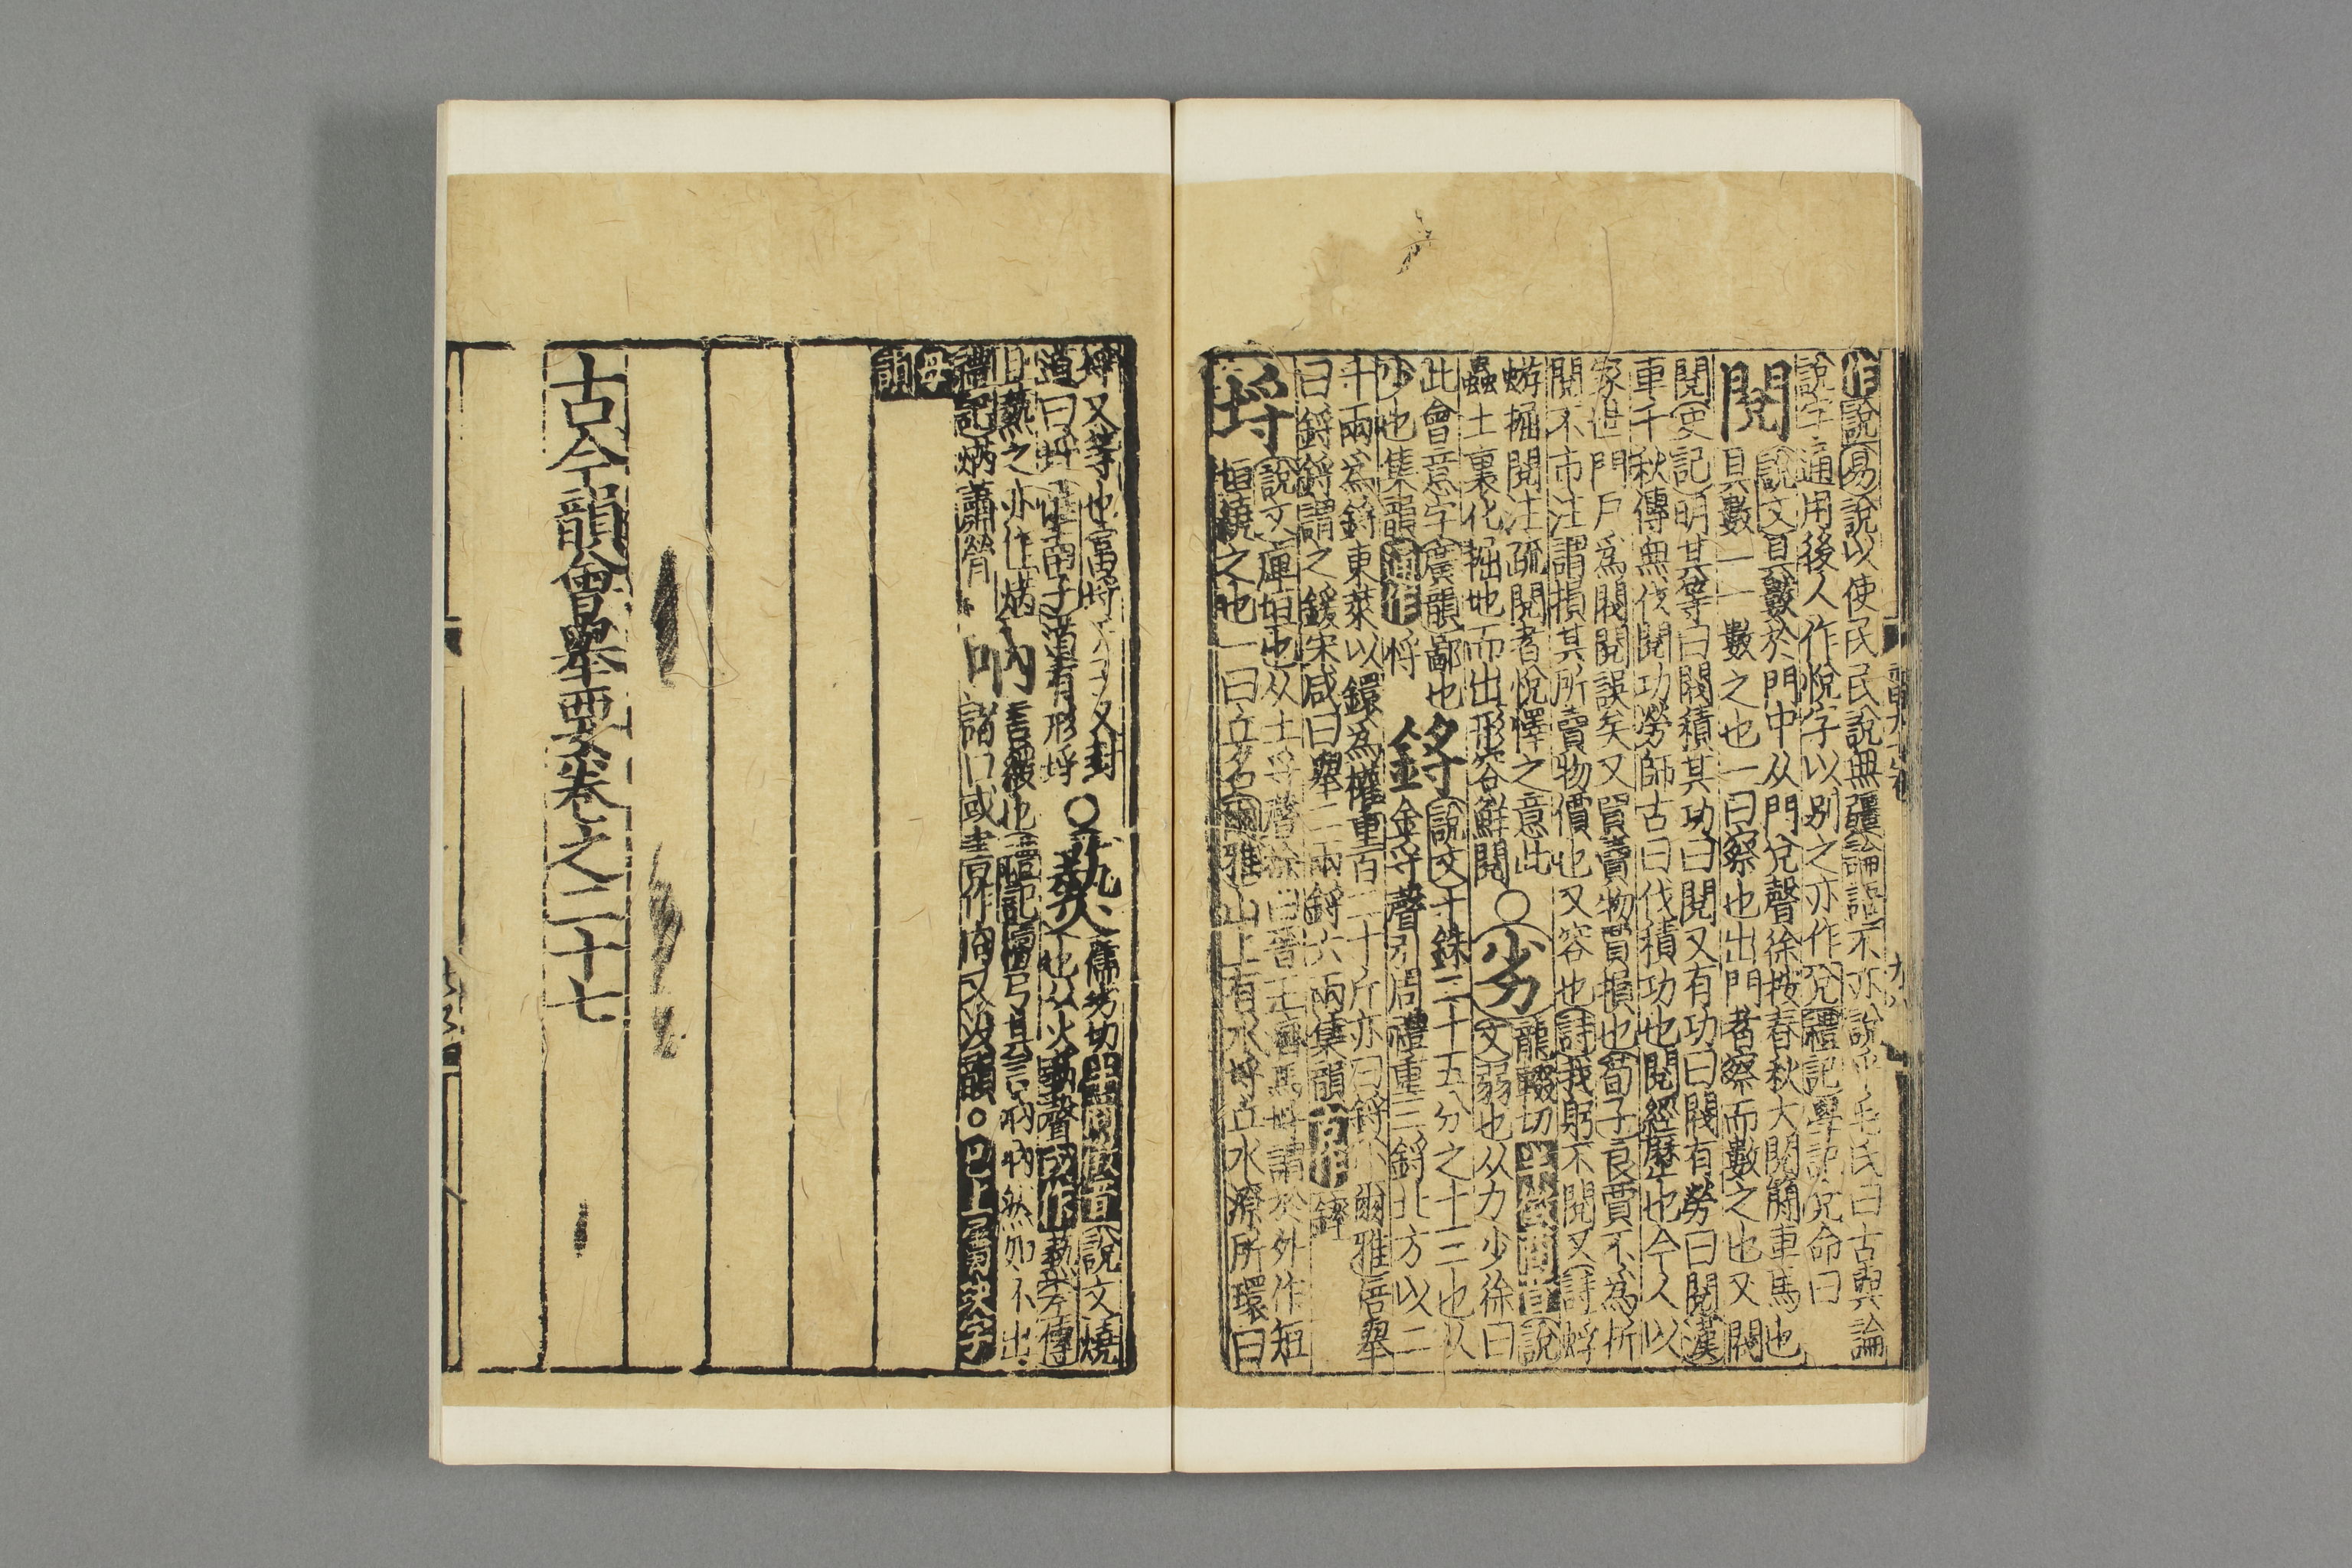 作說易說以使民民說無疆論語不亦說乎毛氏曰古與論
說字通用後人作悅字以別之亦作兌禮記學記兌命曰
閱
說文具數於門中从門兌聲徐按春秋大閱簡車馬也
具數一一數之也一曰察也出門者察而數之也又閥
閱史記明其等曰閥積其功曰閱又有功曰閥有勞曰閱漢
車千秋傳無伐閱功勞師古曰伐積功也閱經歷也今人以
家世門戶為閥閱誤矣又買賣物買損也荀子良賈不為折
閱不市注謂損其所賣物價也又容也詩我躬不閱又詩蜉
蝣掘閱注疏閱者悅懌之意此
蟲土裏化掘地而出形容鮮閱
○劣
龍輟切
說
文弱也从力少徐曰
此會意字廣韻鄙也
少也集韻
埒
鋝
說文十銖二十五分之十三也从
金寽聲引周禮重三鋝北方以二
十兩為鋝東萊以鐶為權重百二十斤亦曰鋝小爾雅倍舉
曰鋝鋝謂之鍰宋咸曰舉二兩鋝六兩集韻
埒
說文庳垣也从土寽聲徐曰晉王濟馬埒謂於外作短
垣繞之也一曰丘名爾雅山上有水埒丘水潦所環曰
埒又等也富埒天子又封
道曰埒淮南子道有形埒
○爇
儒劣切
說文燒
也从火蓺聲
左傳
且爇之亦作焫
禮記焫蕭
吶
言緩也禮記檀弓其言吶吶然如不出
諸口或
作
又
韻○已上屬玦字
母
韻
古今韻會舉要卷之二十七